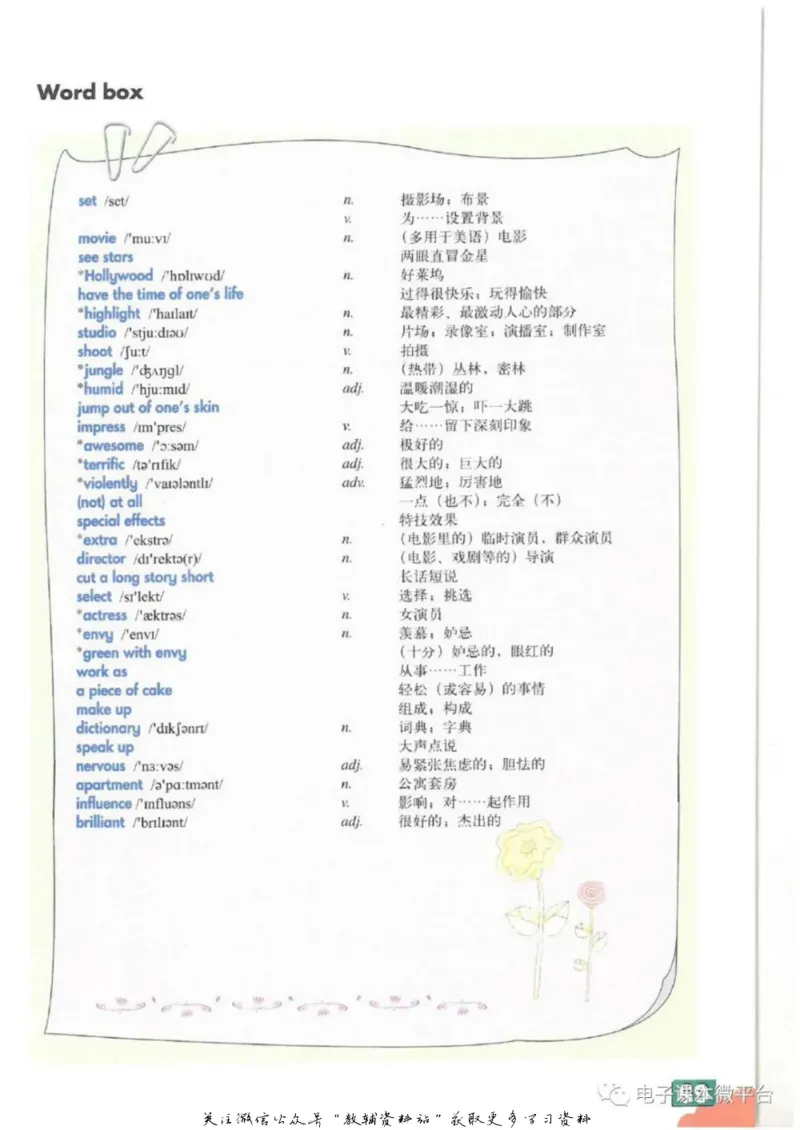 Word box
set /set/ n. 摄影场；布景
v. 为……设置背景
movie /'muːvɪ/ n. （多用于美语）电影
see stars 两眼直冒金星
*Hollywood /'hɒlɪwʊd/ n. 好莱坞
have the time of one's life 过得很快乐；玩得愉快
*highlight /'haɪlaɪt/ n. 最精彩、最激动人心的部分
studio /'stjuːdɪəʊ/ n. 片场；录像室；演播室；制作室
shoot /ʃuːt/ v. 拍摄
*jungle /'ʤʌŋgl/ n. （热带）丛林，密林
*humid /'hjuːmɪd/ adj. 温暖潮湿的
jump out of one's skin 大吃一惊；吓一大跳
impress /ɪm'pres/ v. 给……留下深刻印象
*awesome /'ɔːsəm/ adj. 极好的
*terrific /tə'rɪfɪk/ adj. 很大的；巨大的
*violently /'vaɪələntlɪ/ adv. 猛烈地；厉害地
(not) at all 一点（也不）；完全（不）
special effects 特技效果
*extra /'ekstrə/ n. （电影里的）临时演员，群众演员
director /dɪ'rektə(r)/ n. （电影、戏剧等的）导演
cut a long story short 长话短说
select /sɪ'lekt/ v. 选择；挑选
*actress /'æktrəs/ n. 女演员
*envy /'envɪ/ n. 羡慕；妒忌
*green with envy （十分）妒忌的，眼红的
work as 从事……工作
a piece of cake 轻松（或容易）的事情
make up 组成；构成
dictionary /'dɪkʃənrɪ/ n. 词典；字典
speak up 大声点说
nervous /'nɜːvəs/ adj. 易紧张焦虑的；胆怯的
apartment /ə'pɑːtmənt/ n. 公寓套房
influence /'ɪnfluəns/ v. 影响；对……起作用
brilliant /'brɪlɪənt/ adj. 很好的；杰出的
电子课本微平台
关注微信公众号"教辅资料站"获取更多学习资料